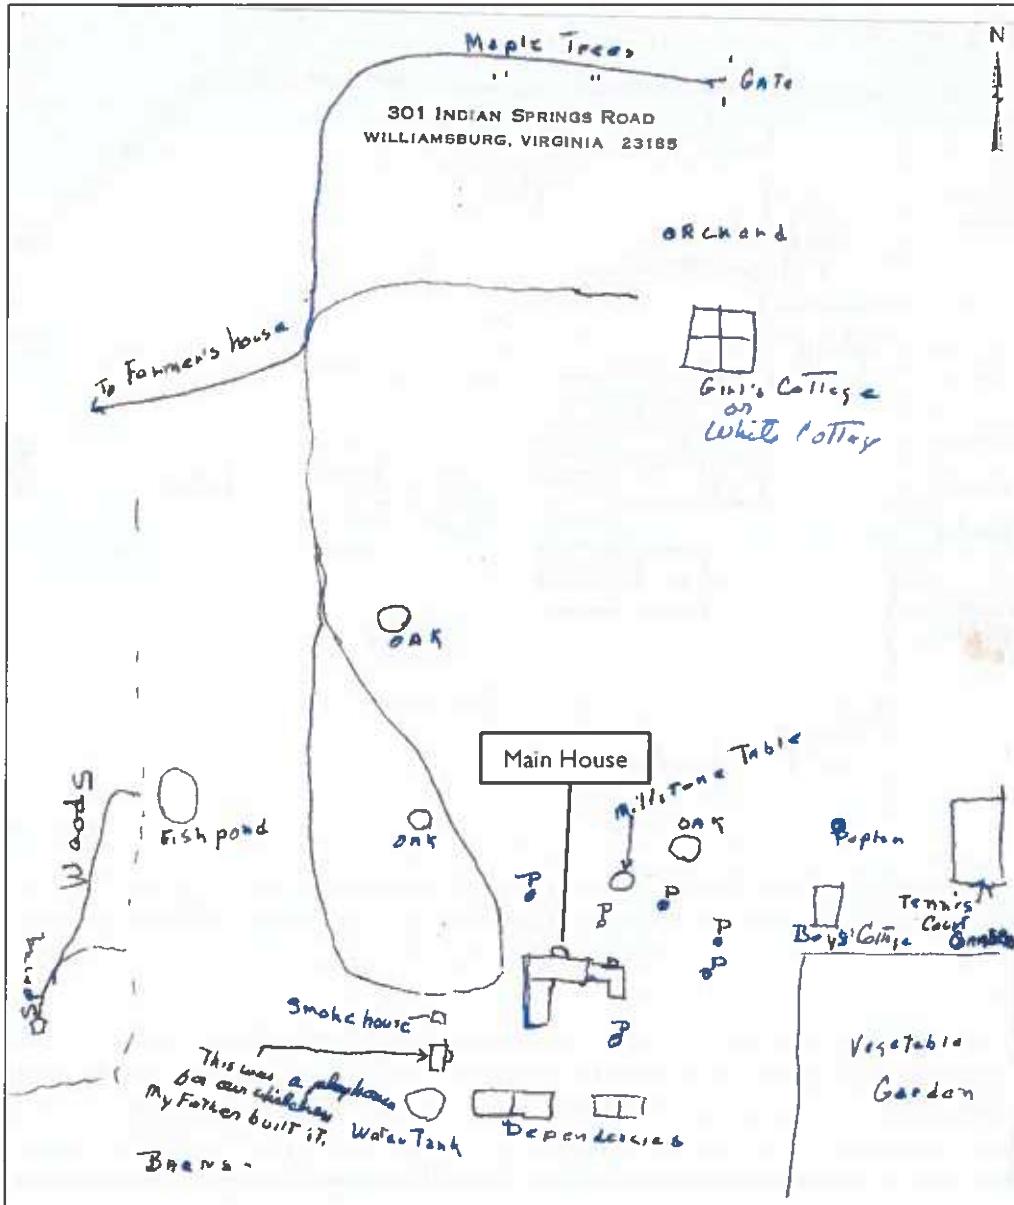 N
Maple Trees
GATE
301 INDIAN SPRINGS ROAD
WILLIAMSBURG, VIRGINIA 23185
ORchard
To Farmer's house
Girl's Cottage
or
White Cottage
OAK
Main House
Millstone Table
Woods
Fish pond
OAK
OAK
P
P
P
P
P
P
Tennis
Court
Boys' Cottage
Spring
Smoke house
This was a playhouse
for our children
My Father built it.
Water Tank
Dependencies
Vegetable
Garden
BARNS.